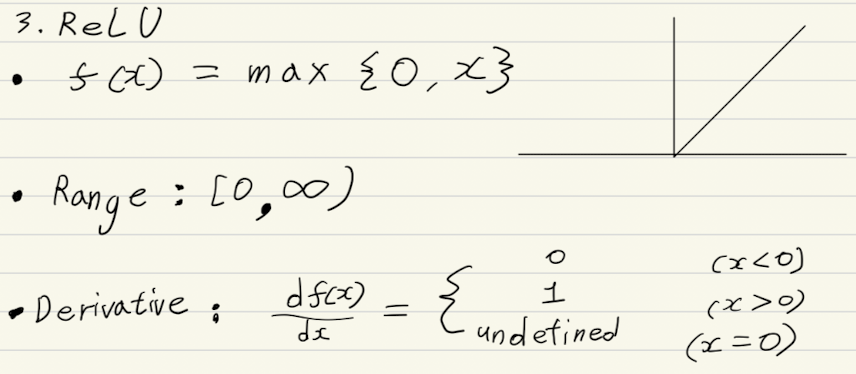 3. ReLU
• f(x) = max {0, x}
• Range : [0, ∞)
• Derivative : df(x)/dx = { 0 (x<0)
1 (x>0)
undefined (x=0)